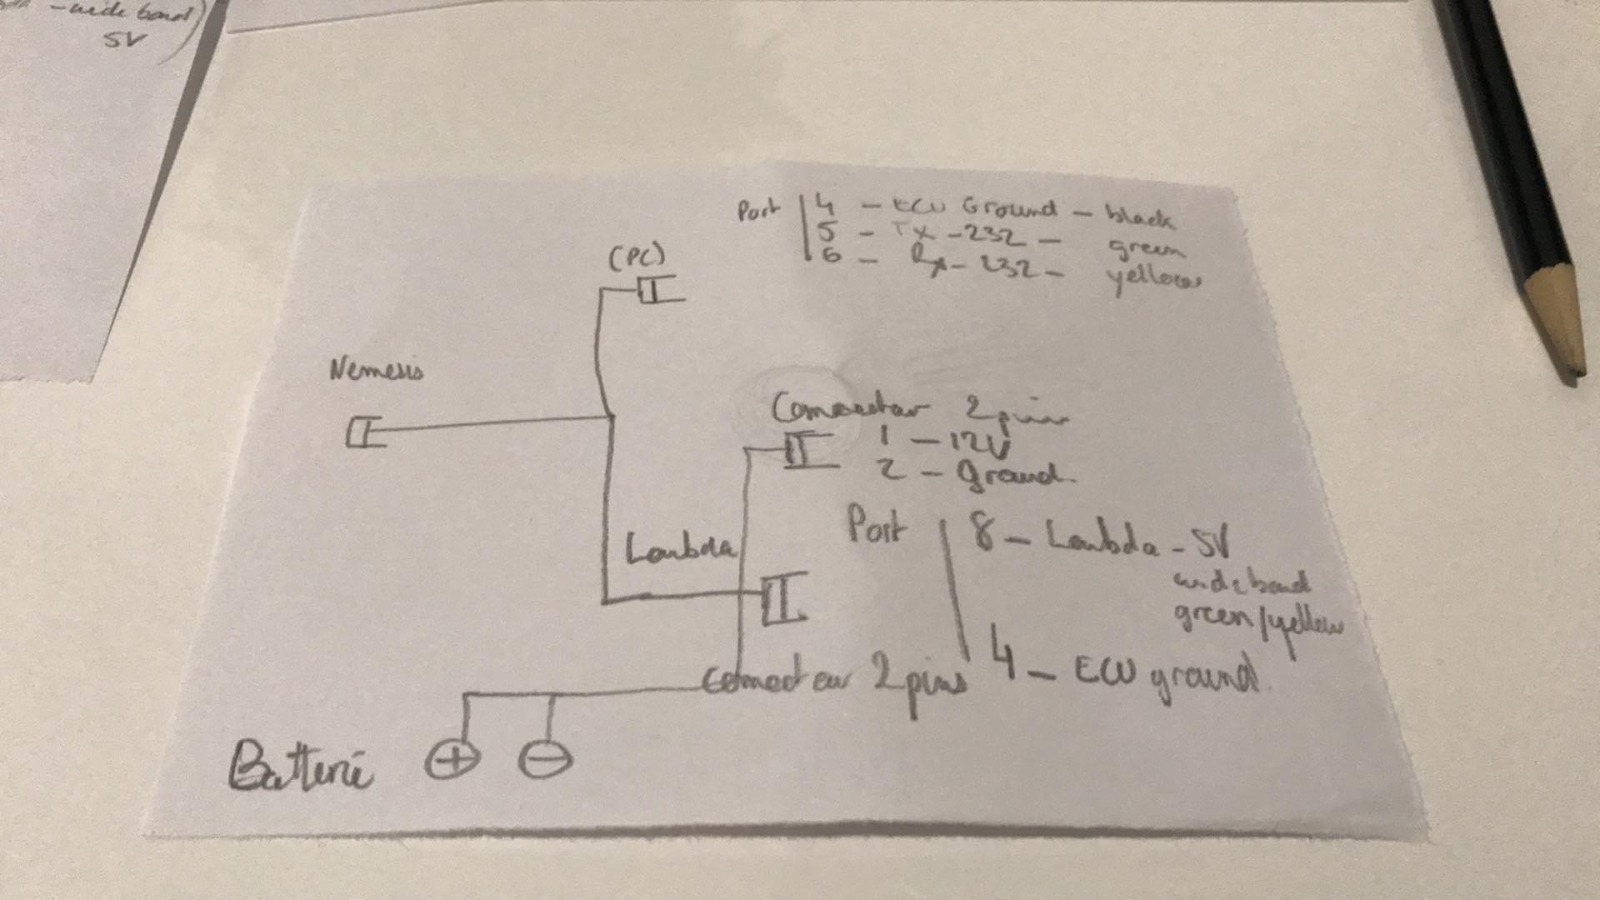 - wide band)
5V
Port 4 - ECU Ground - black
5 - Tx - 232 - green
6 - Rx - 232 - yellow
(PC)
Nemesis
Connecteur 2 pins
1 - 12V
2 - Ground
Lambda
Port 8 - Lambda - 5V
wideband
green/yellow
4 - ECU ground
Connecteur 2 pins
Batterie